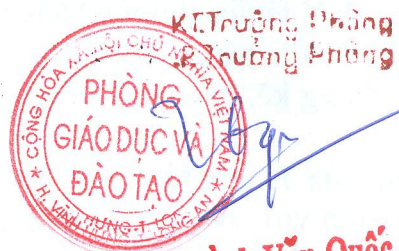 KT.Trưởng Phòng
P.Trưởng Phòng
CỘNG HÒA XÃ HỘI CHỦ NGHĨA VIỆT NAM
PHÒNG
GIÁO DỤC VÀ
ĐÀO TẠO
H. VĨNH HƯNG-T. LONG AN
Văn Quốc